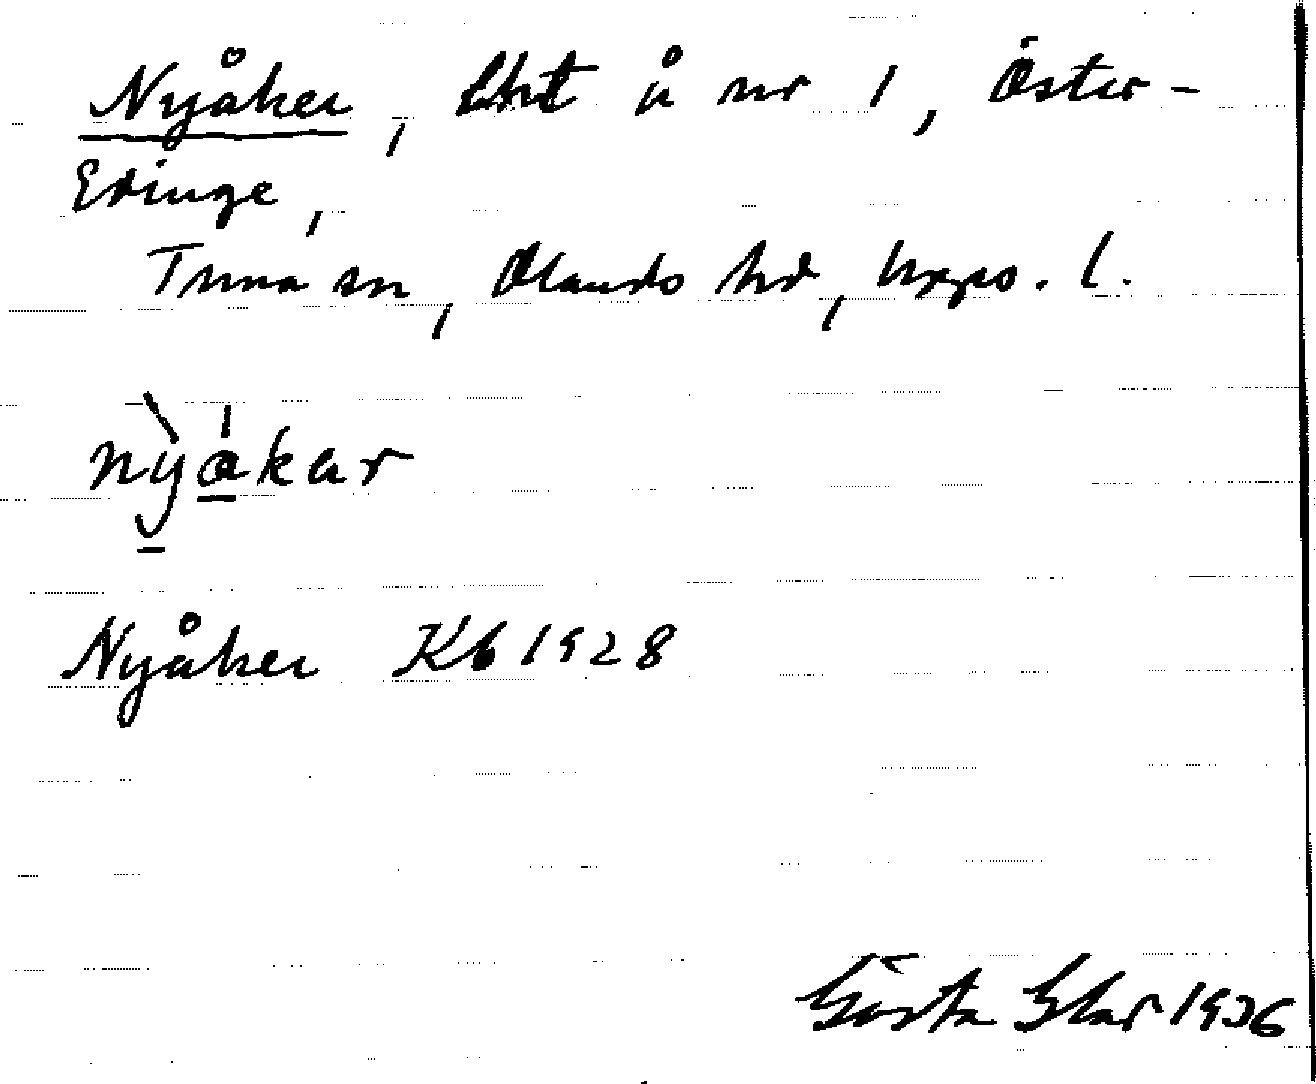 Nyåker, lht å nr 1, Öster-
Edinge,
Tuna sn, Olands hd, Upps. l.
nỳåkar
Nyåker Kb 1928
Gösta Elar 1936